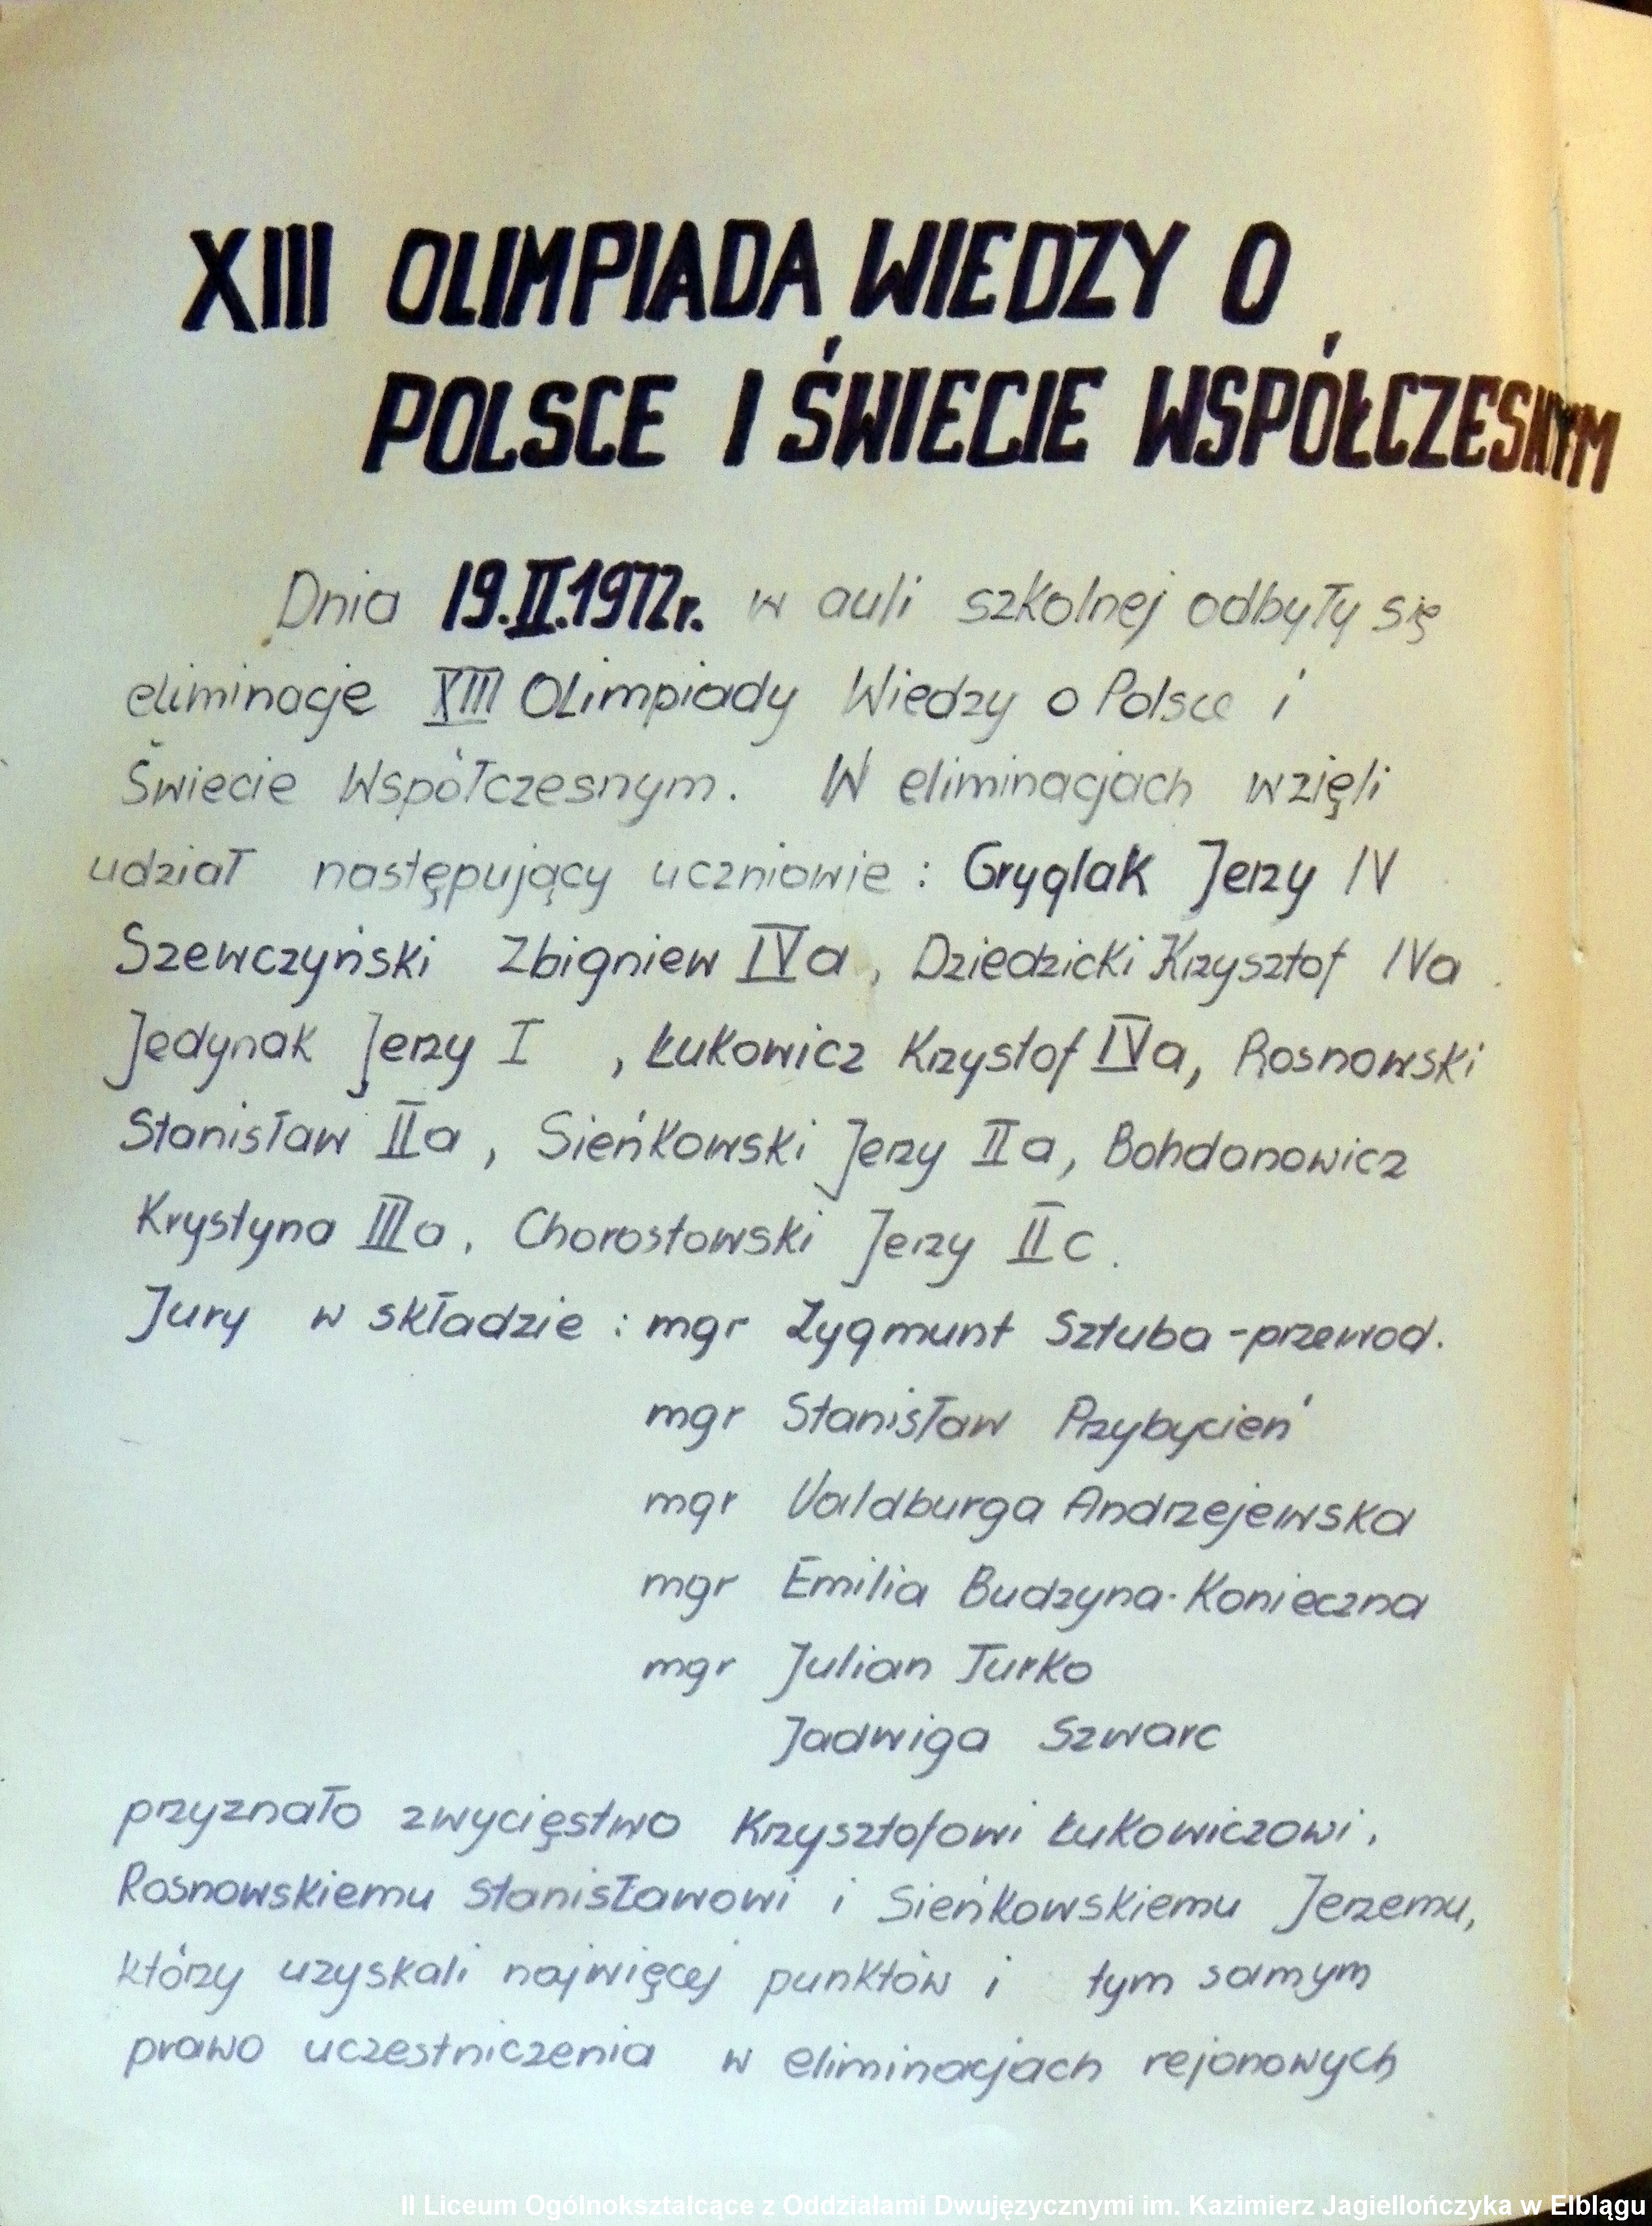 XIII OLIMPIADA WIEDZY O
POLSCE I ŚWIECIE WSPÓŁCZESNYM
Dnia 19.II.1972r. w auli szkolnej odbyły się
eliminacje XIII Olimpiady Wiedzy o Polsce i
Świecie Współczesnym. W eliminacjach wzięli
udział następujący uczniowie : Gryglak Jerzy IV
Szewczyński Zbigniew IVa, Dziedzicki Krzysztof IVa
Jedynak Jerzy I , Łukowicz Krzystof IVa, Rosnowski
Stanisław IIa, Sieńkowski Jerzy IIa, Bohdanowicz
Krystyna IIIa, Chorostowski Jerzy IIc.
Jury w składzie : mgr Zygmunt Sztuba - przewod.
mgr Stanisław Przybycień
mgr Valdburga Andrzejewska
mgr Emilia Budzyna-Konieczna
mgr Julian Turko
Jadwiga Szwarc
przyznało zwycięstwo Krzysztofowi Łukowiczowi,
Rosnowskiemu Stanisławowi i Sieńkowskiemu Jerzemu,
którzy uzyskali najwięcej punktów i tym samym
prawo uczestniczenia w eliminacjach rejonowych
II Liceum Ogólnokształcące z Oddziałami Dwujęzycznymi im. Kazimierz Jagiellończyka w Elblągu